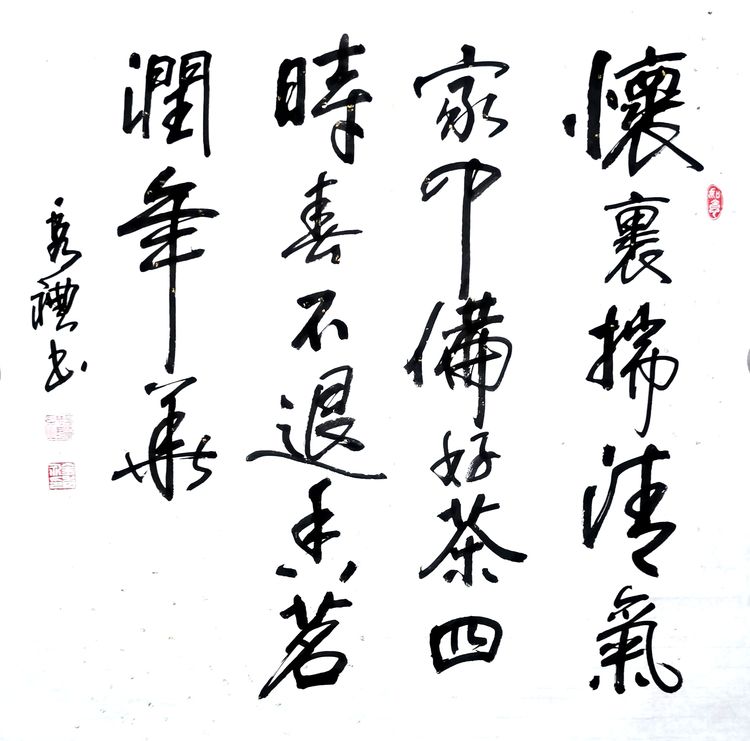 懷裏揣清氣
家中備好茶四
時春不退香茗
潤年華
禮书